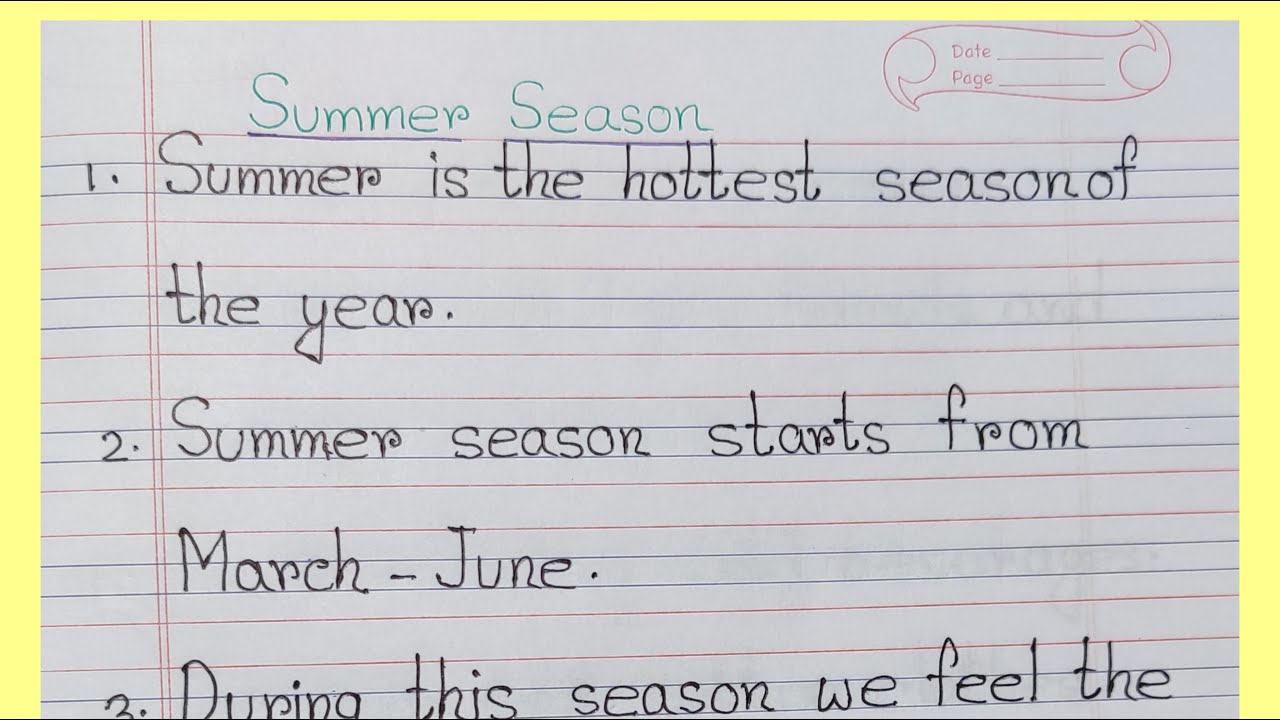 Date
Page
Summer Season
1. Summer is the hottest season of
the year.
2. Summer season starts from
March - June.
3. During this season we feel the